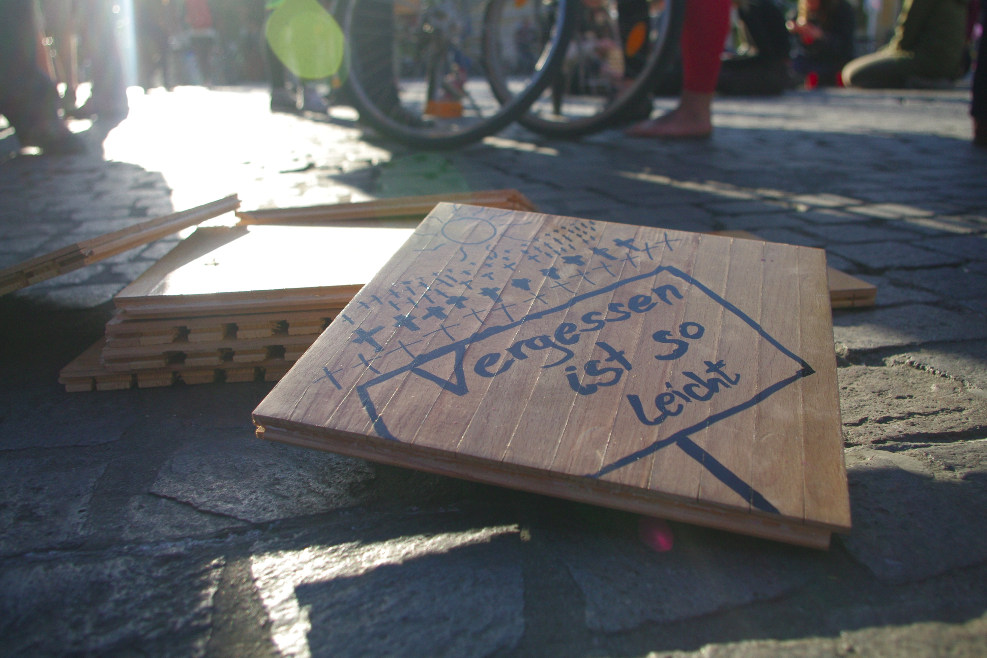 Vergessen
ist so
Leicht